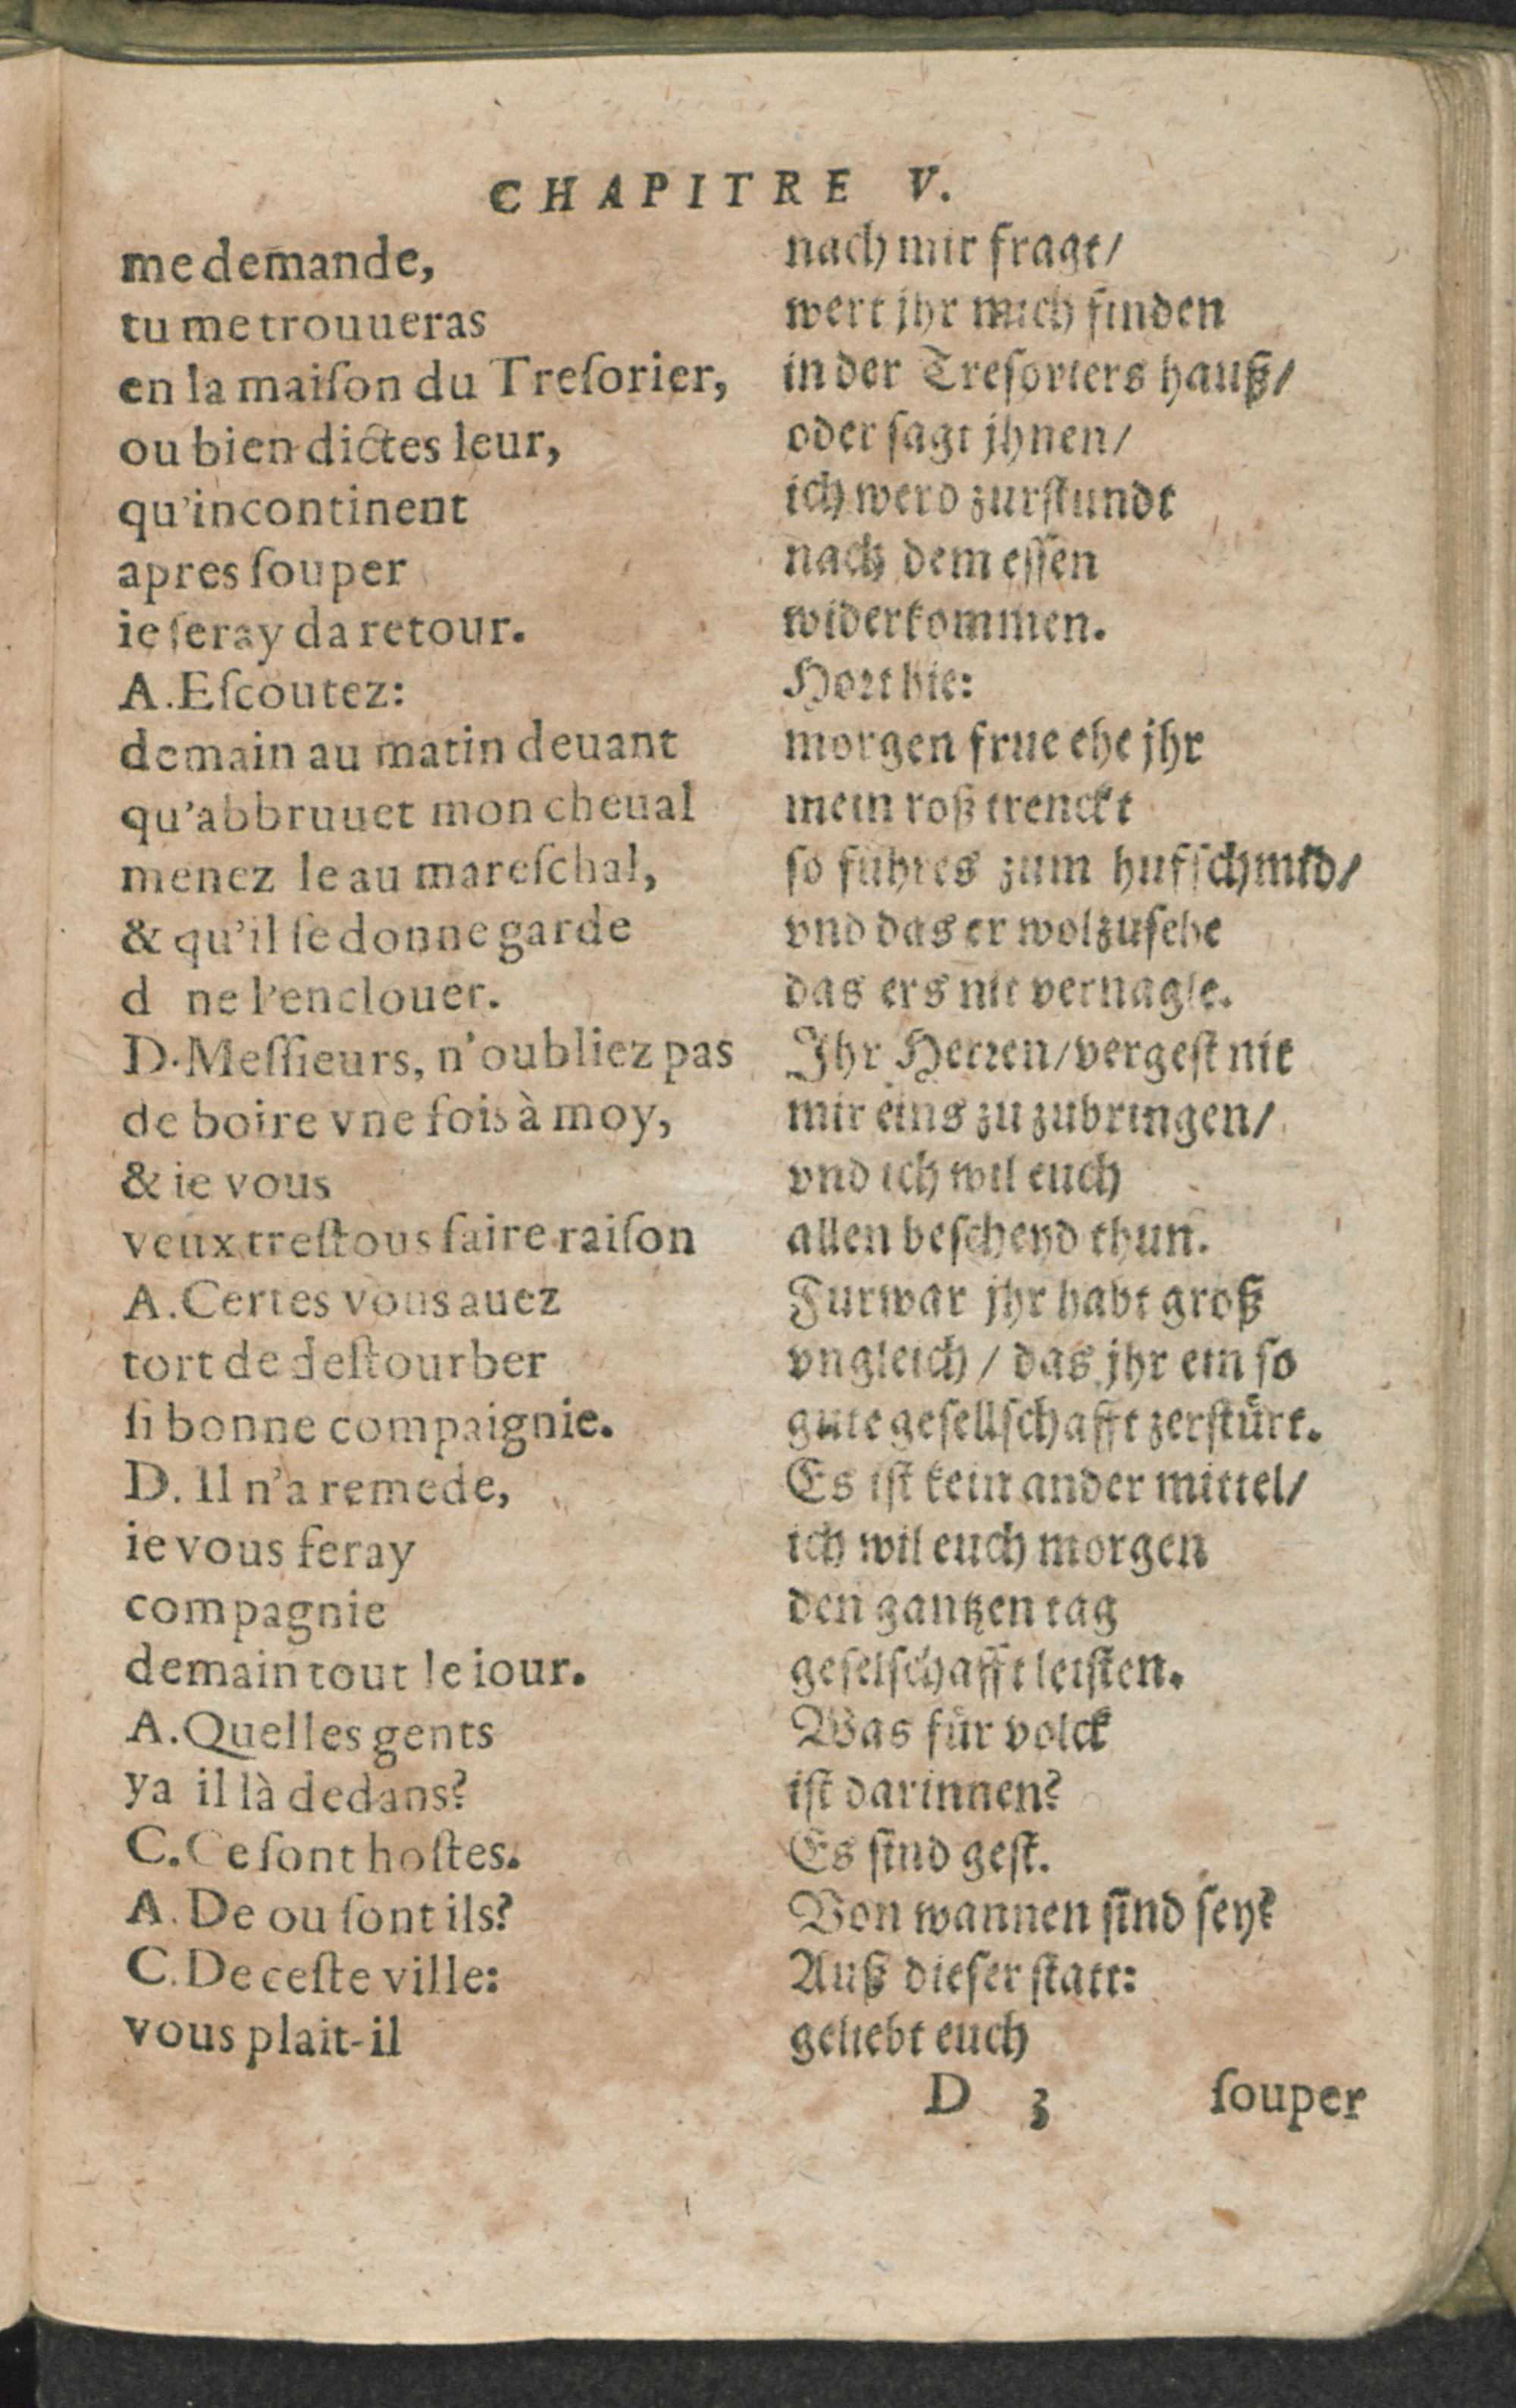 CHAPITRE V.
me demande,
tu me trouueras
en la maiſon du Treſorier,
ou bien dictes leur,
qu'incontinent
apres ſouper
ie ſeray da retour.
A. Eſcoutez:
demain au matin deuant
qu'abbruuet mon cheual
menez le au mareſchal,
& qu'il ſe donne garde
d ne l'enclouer.
D. Meſſieurs, n'oubliez pas
de boire vne fois à moy,
& ie vous
veux treſtous faire raiſon
A. Certes vous auez
tort de deſtourber
ſi bonne compaignie.
D. Il n'a remede,
ie vous feray
compagnie
demain tout le iour.
A. Quelles gents
ya il là dedans?
C. Ce ſont hoſtes.
A. De ou ſont ils?
C. De ceſte ville:
vous plait-il
nach mir fragt/
wert jhr mich finden
in der Treſoriers hauß/
oder ſagt jhnen/
ich werd zurſtundt
nach dem eſſen
widerkommen.
Hort hie:
morgen frue ehe jhr
mein roß trenckt
ſo führes zum hufſchmid/
vnd das er wolzuſehe
das ers nit vernagle.
Ihr Herren/vergeſt nit
mir eins zu zubringen/
vnd ich wil euch
allen beſcheyd thun.
Furwar jhr habt groß
vngleich / das jhr ein ſo
gute geſellſchafft zerſtürt.
Es iſt kein ander mittel/
ich wil euch morgen
den gantzen tag
geſelſchafft leiſten.
Was für volck
iſt darinnen?
Es ſind geſt.
Von wannen ſind ſey?
Auß dieſer ſtatt:
geliebt euch
D 3 ſouper